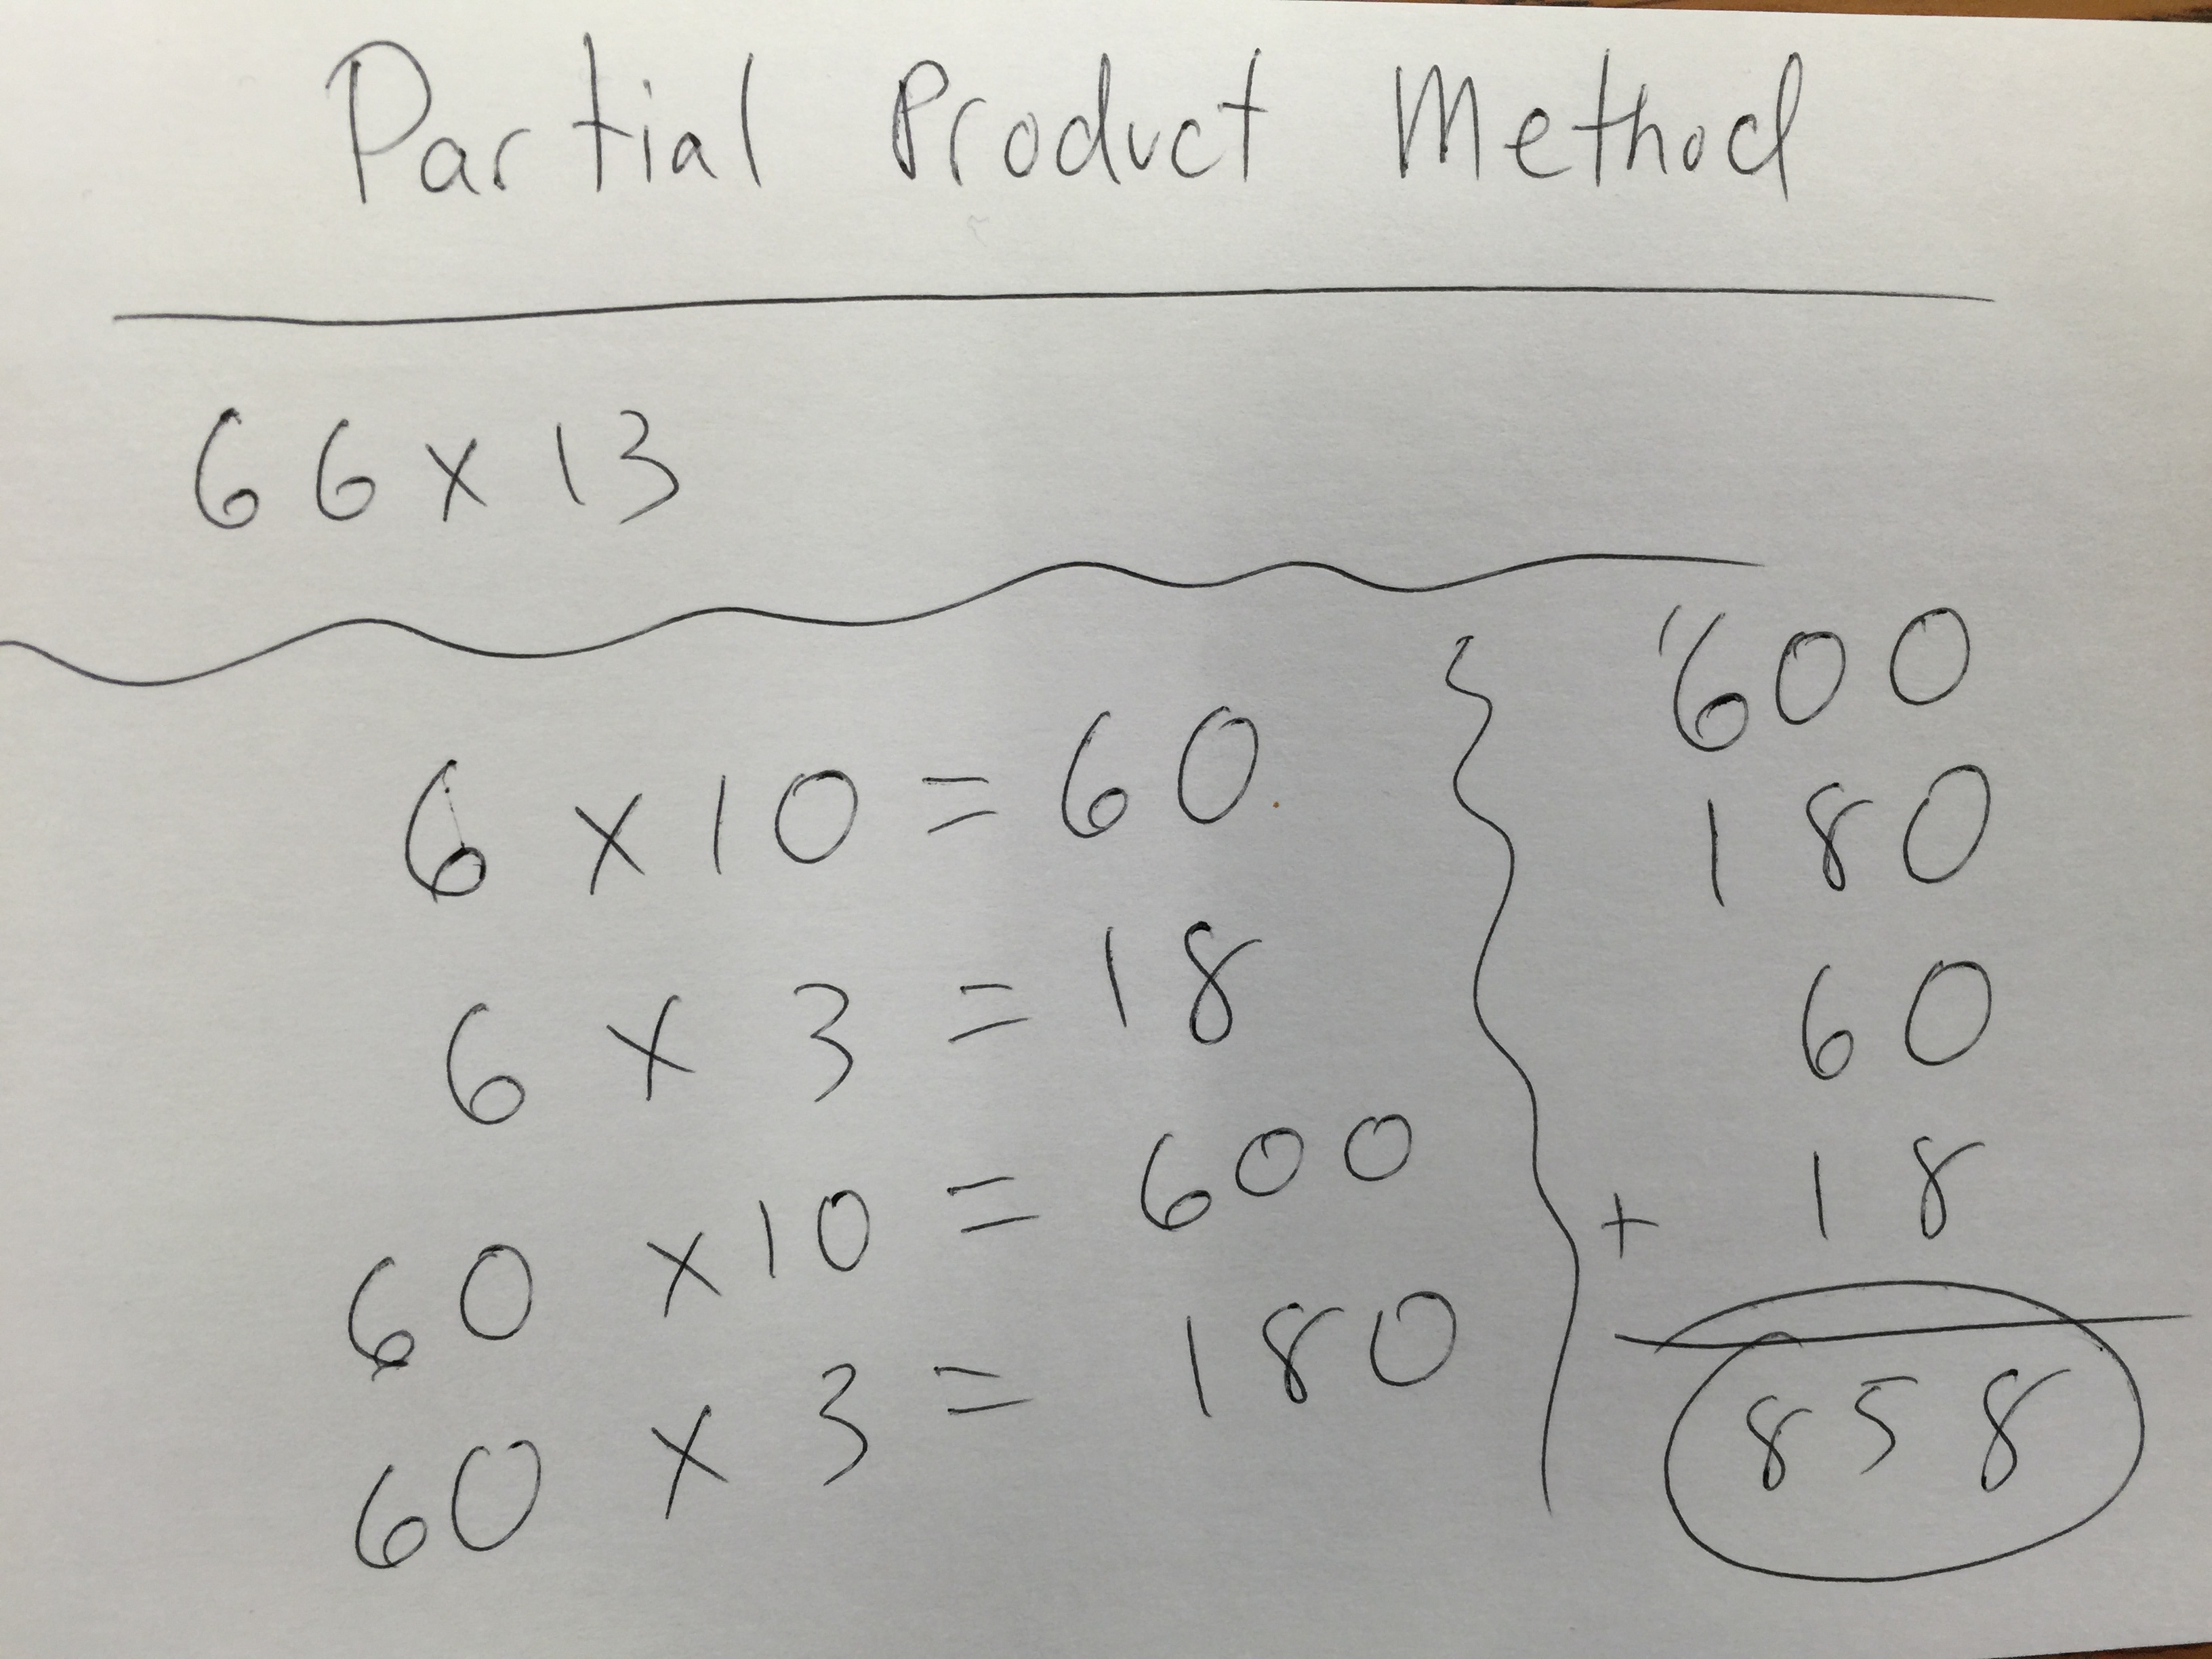 Partial Product Method
66 x 13
6 x 10 = 60
6 x 3 = 18
60 x 10 = 600
60 x 3 = 180
600
180
60
+ 18
858